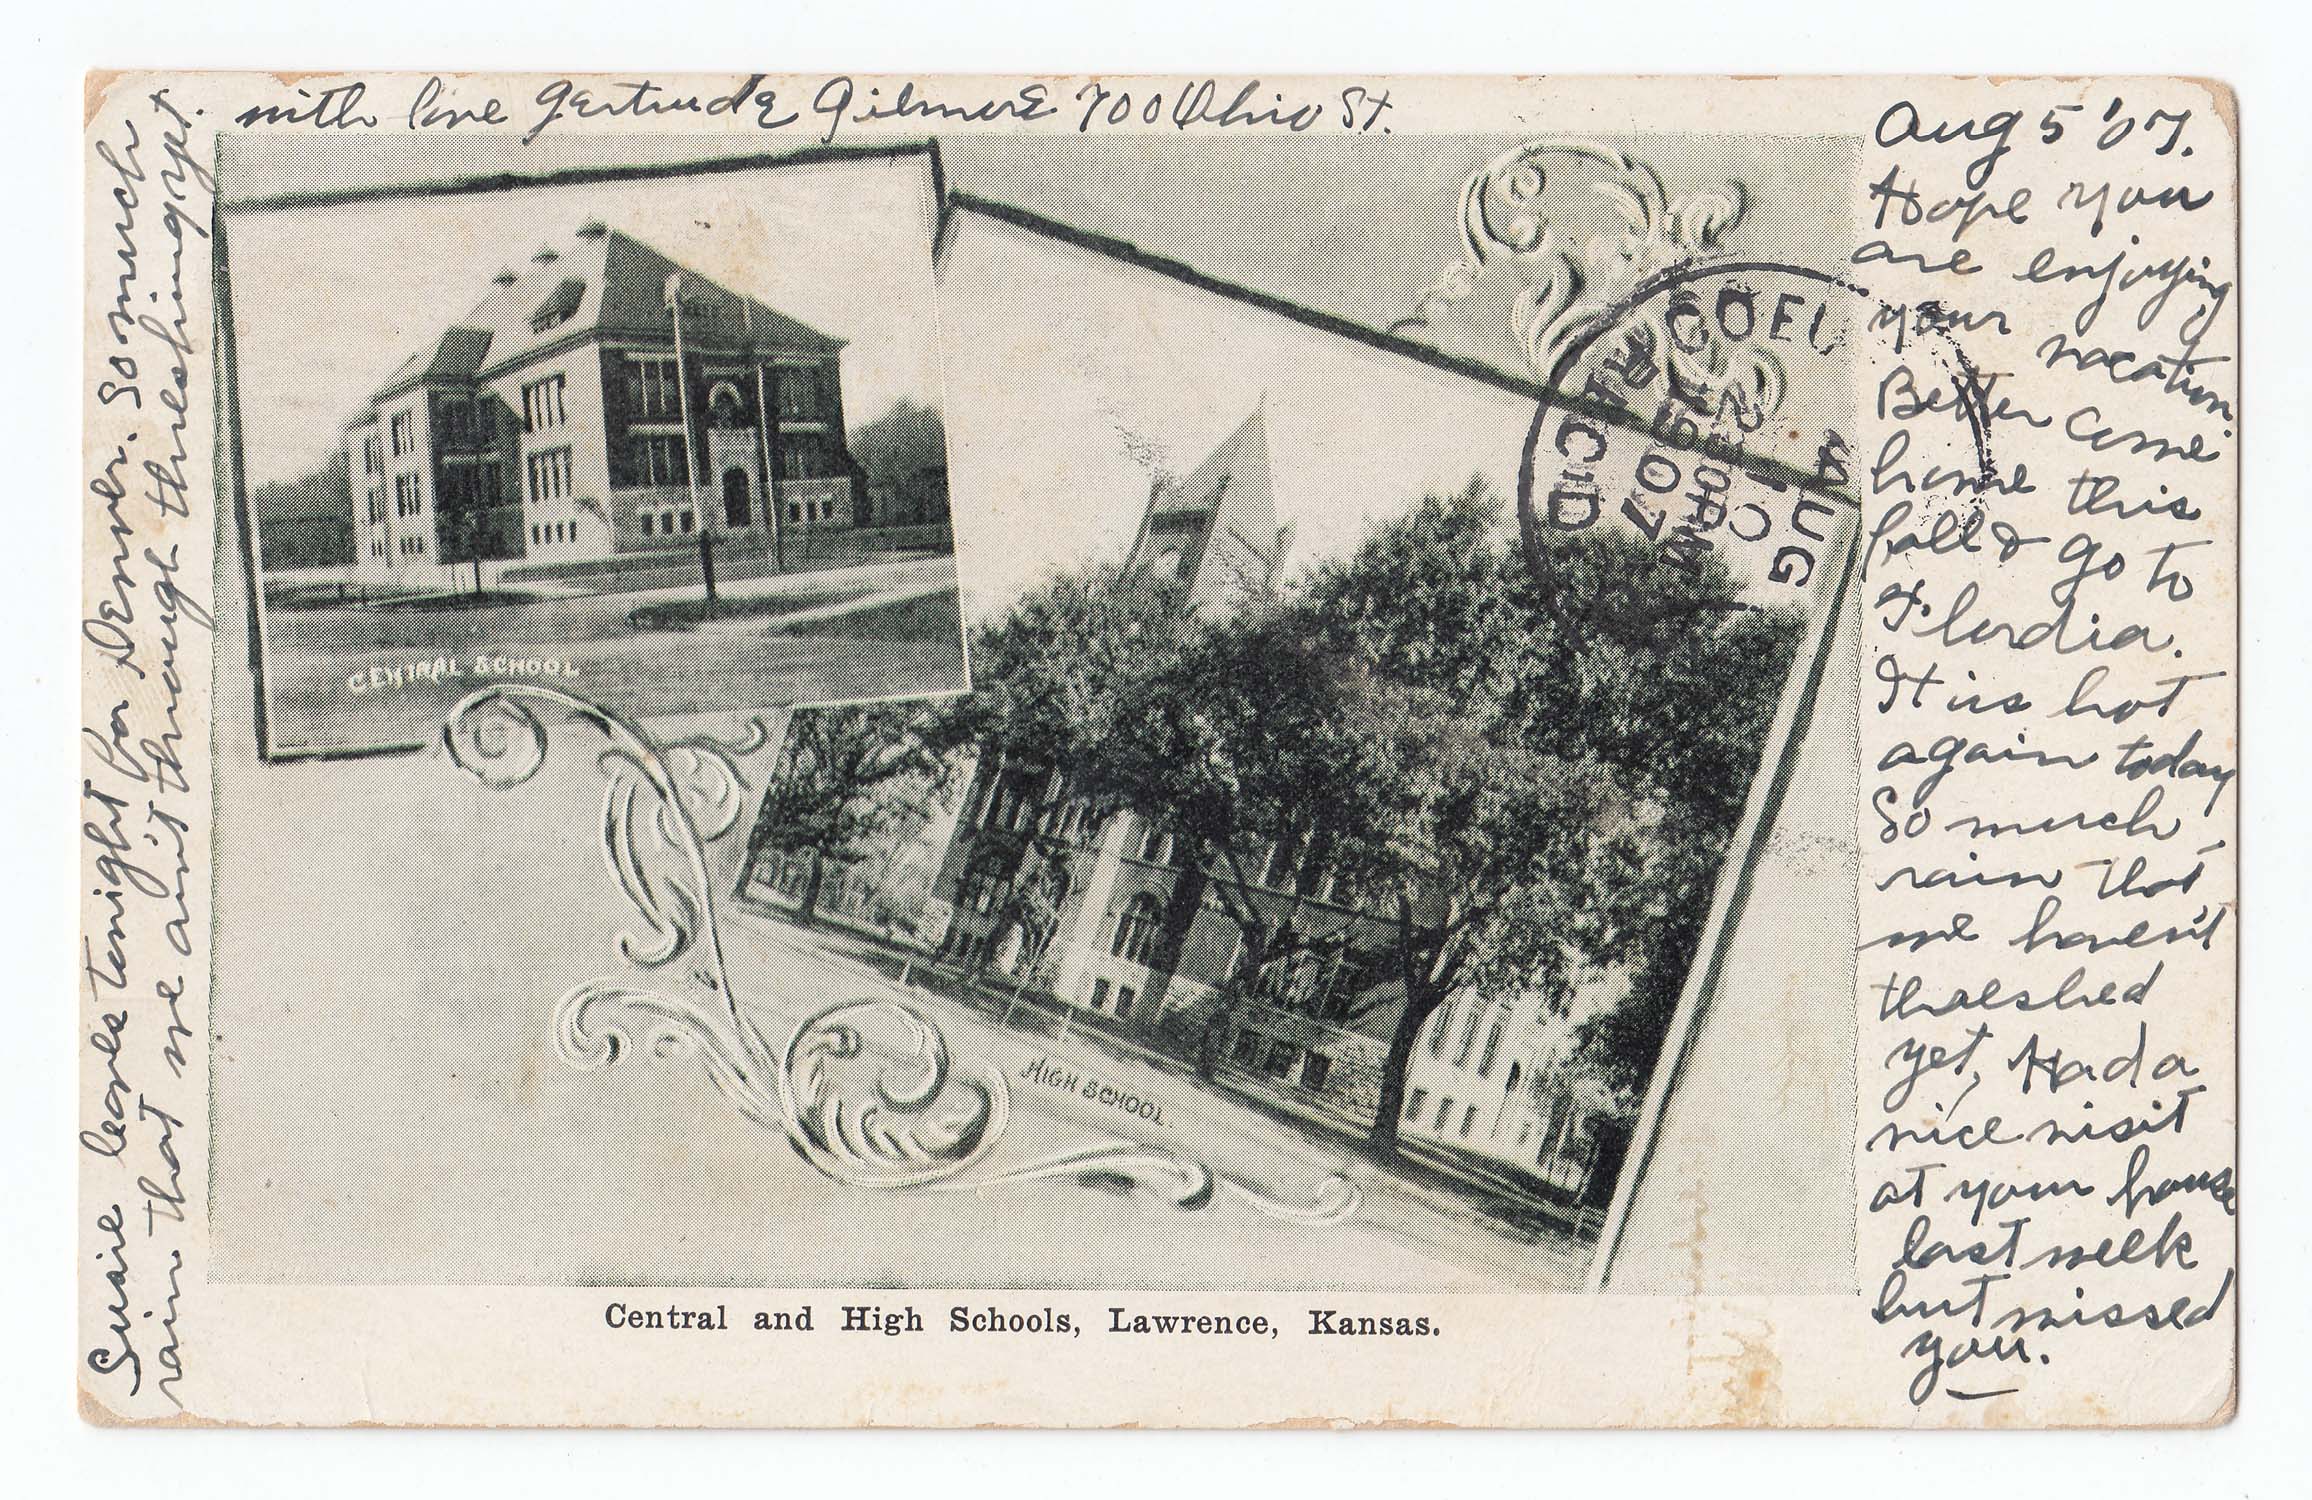 with love Gertrude Gilmore 700 Ohio St.
Aug 5 '07.
Hope you
are enjoying
your vacation.
Better come
home this
fall & go to
Flordia.
It is hot
again today
So much
rain that
we haven't
thoeshed
yet, Had a
nice visit
at your house
last week
but missed
you.
Susie leaves tonight for Denver. So much
rain that we ain't through threshing yet.
CENTRAL SCHOOL
HIGH SCHOOL.
REC'D
AUG
2 30 PM
07
Central and High Schools, Lawrence, Kansas.